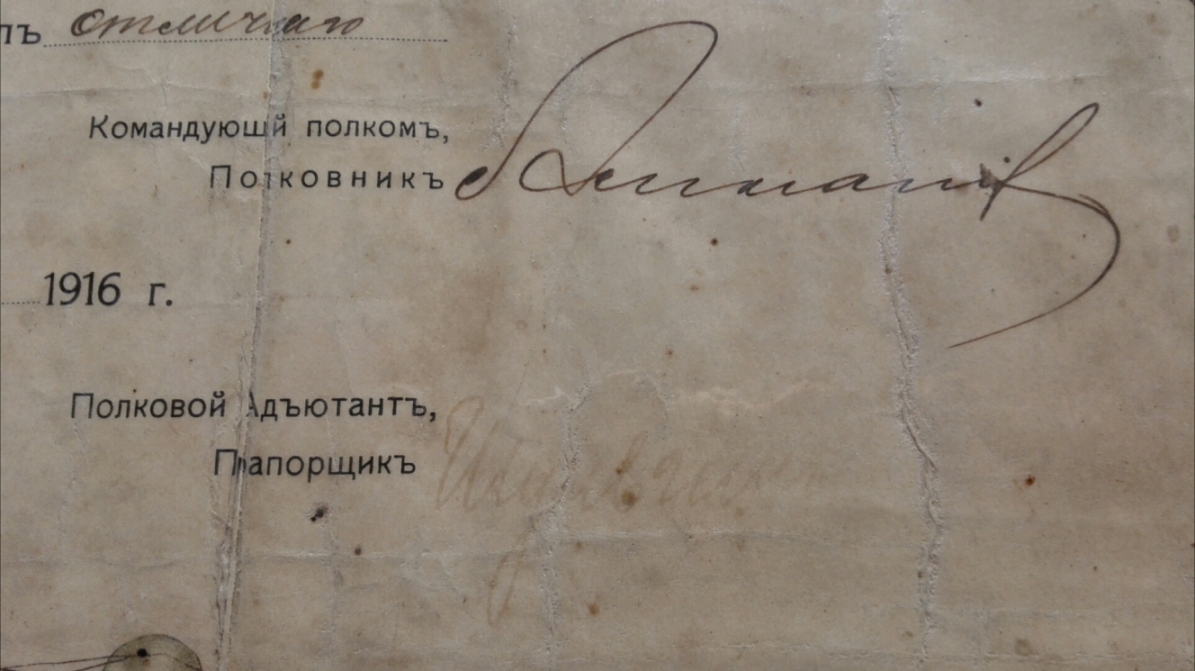 лъ отлично
Командующій полкомъ,
Полковникъ
1916 г.
Полковой Адъютантъ,
Прапорщикъ